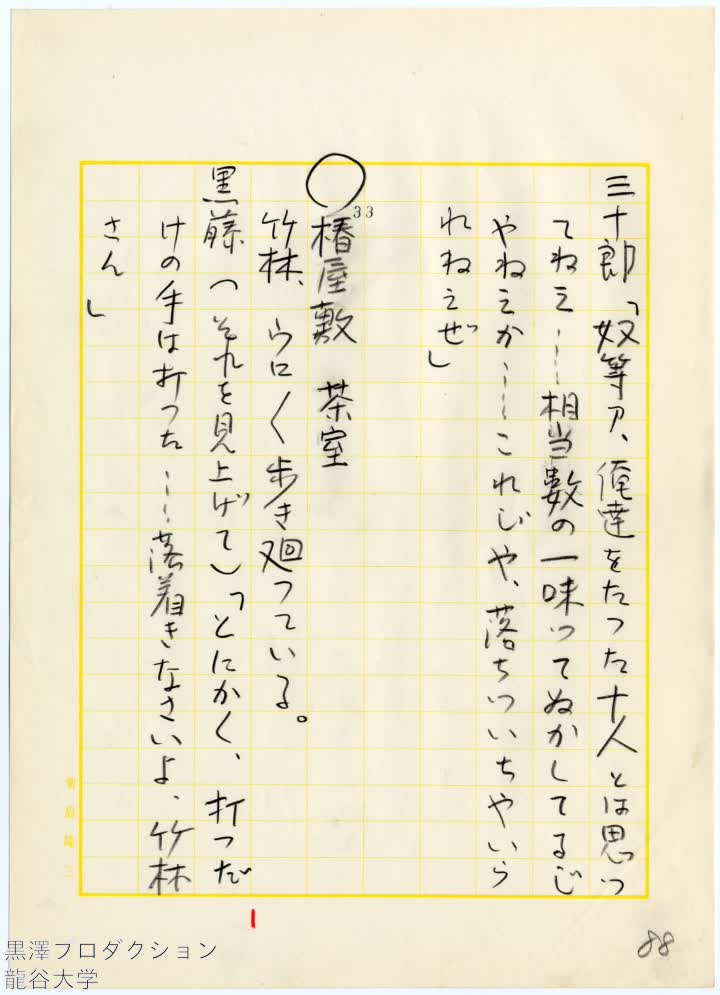 三十郎「奴等ア、俺達をたつた十人とは思つ
てねえ……相当数の一味つてぬかしてるじ
やねえか……これじや、落ちついちやいら
れねえぜ」
○
33
椿屋敷 茶室
竹林、ウロ〱歩き廻つている。
黒藤（それを見上げて）「とにかく、打つだ
けの手は打つた……落着きなさいよ、竹林
さん」
88
黒澤プロダクション
龍谷大学